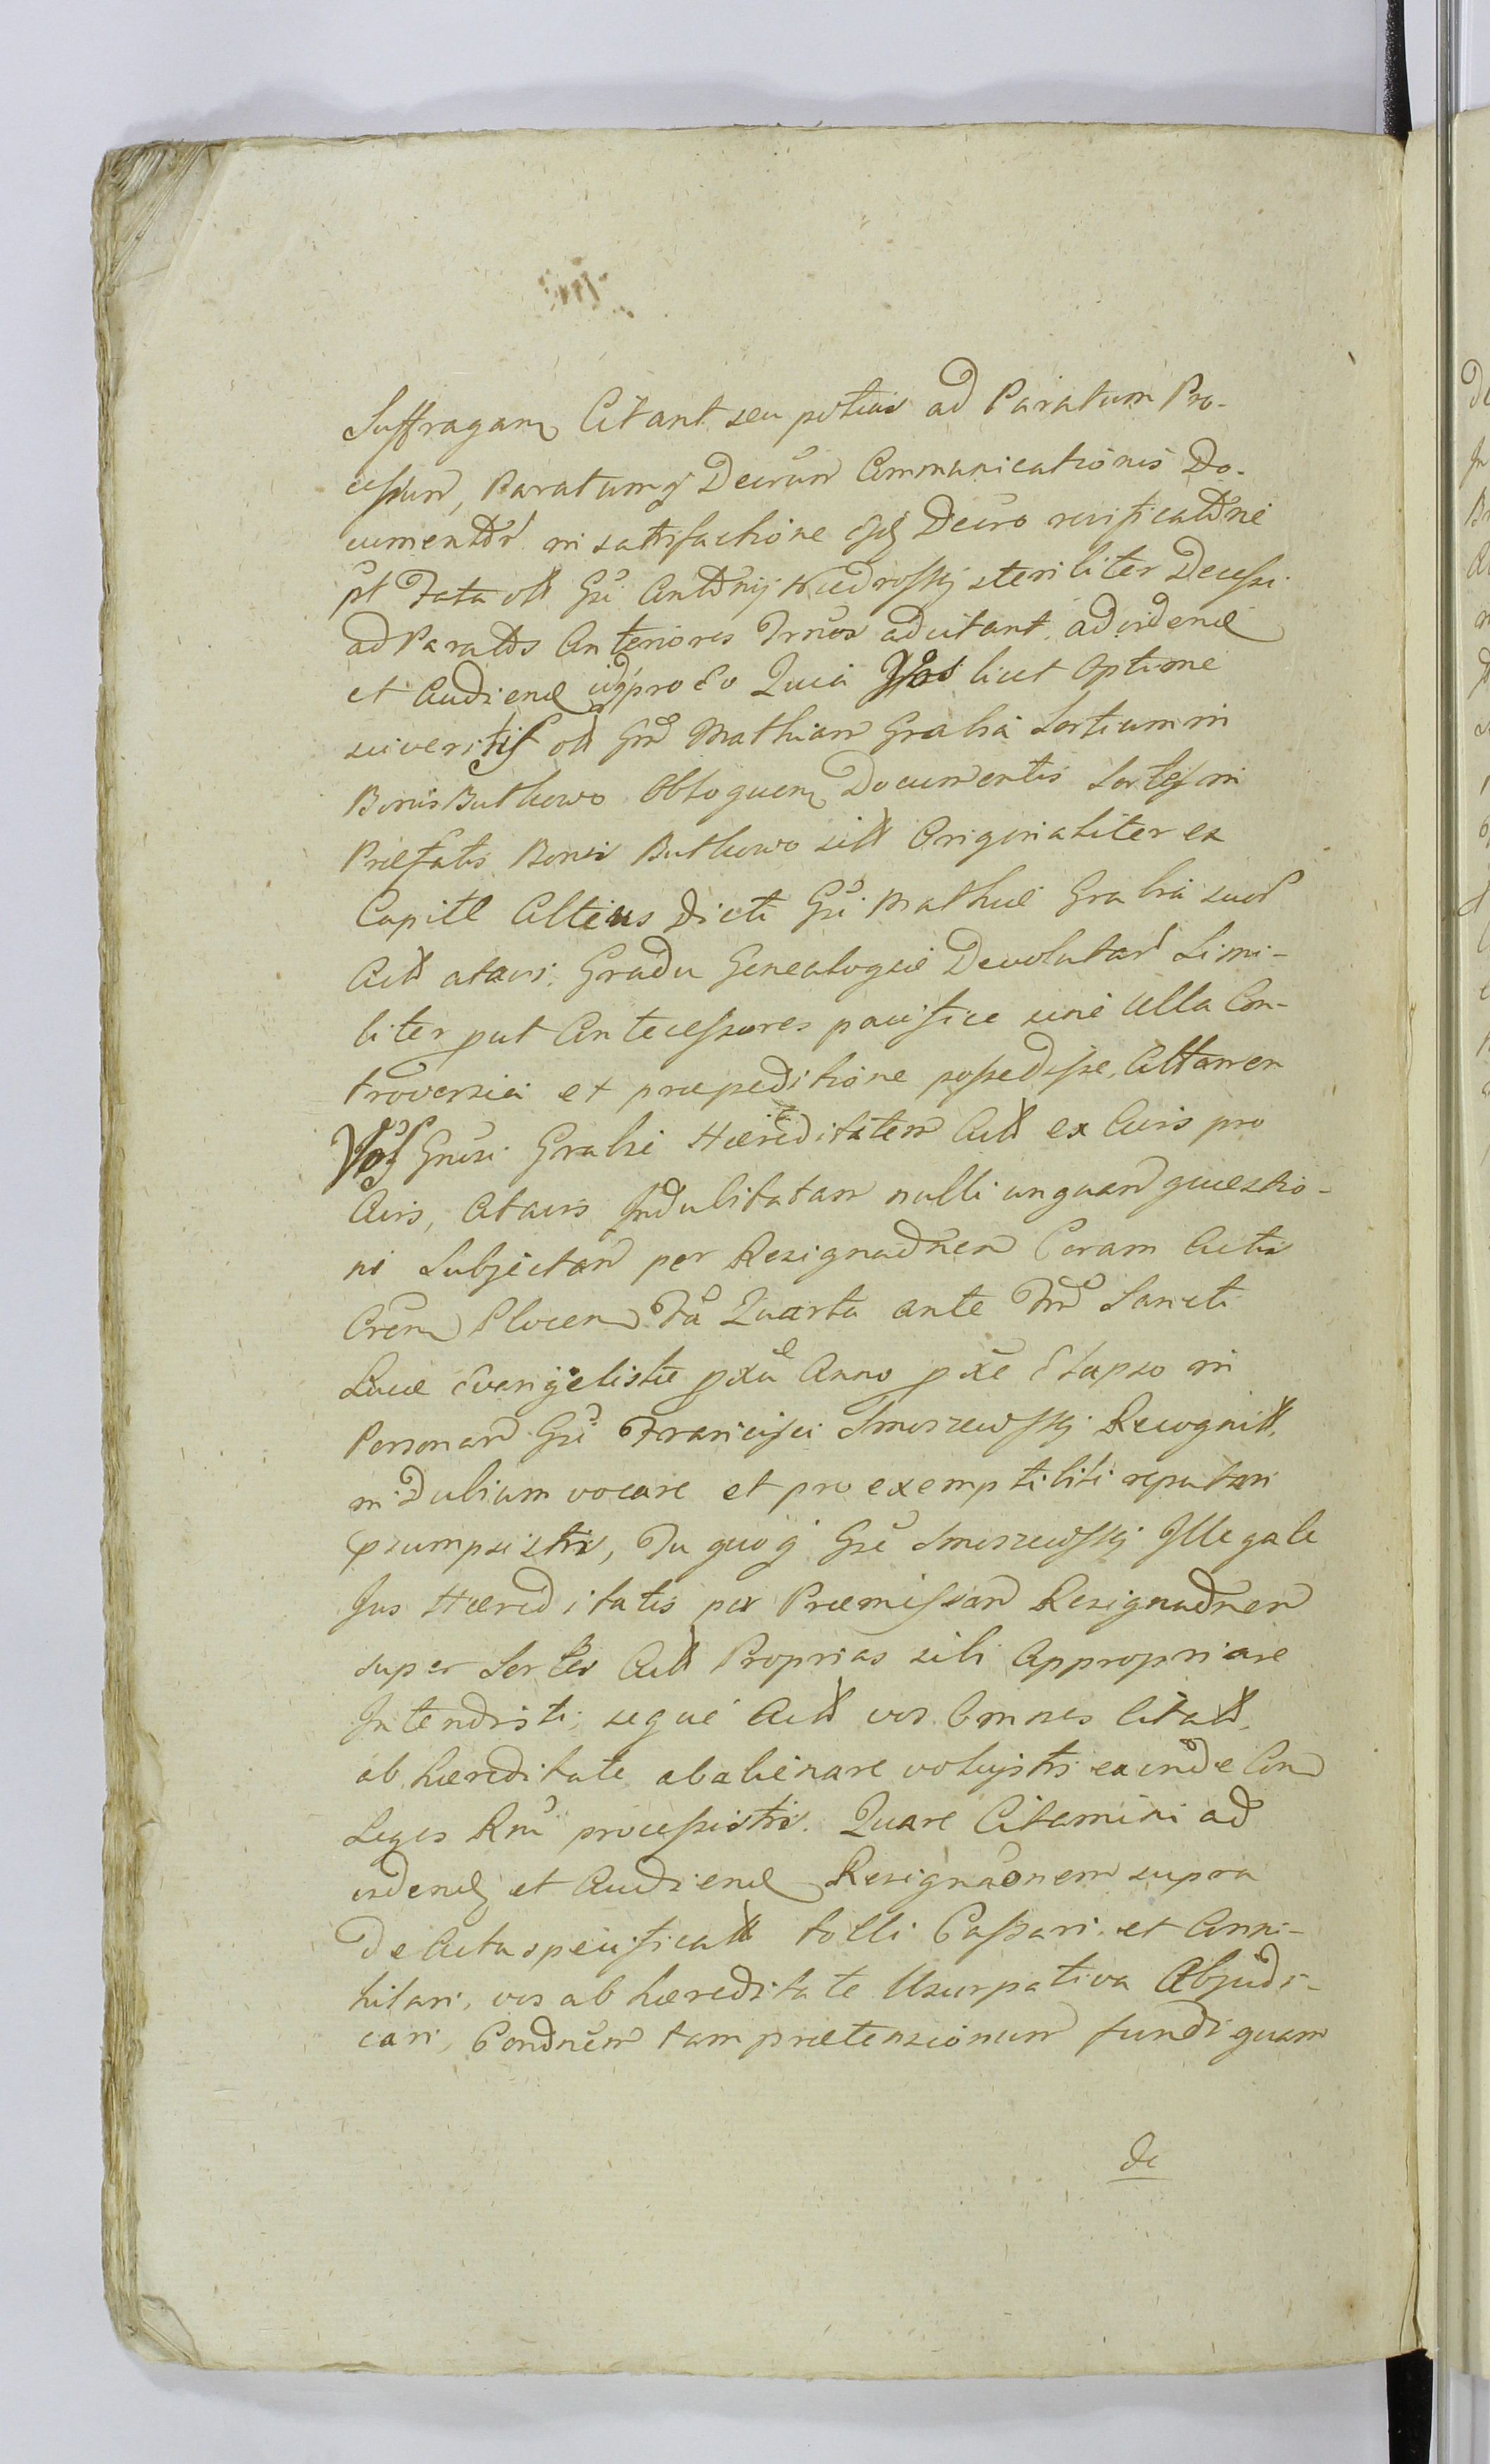 Suffragan Citant seu potius ad Paratum Pro-
cessum, Paratumq Decrum Communicationis Do-
cumentor in satisfactione Decro
pt Fata olt Gsi Antonij steriliter Decessi
ad Paratos Anteriores Trnos adcitant. ad viden
et Audien idq pro Eo Quia Vos licet Optime
sciveritis olt Gnd Mathiam Grabia Sortium in
Bonis Buthowo Documentis Sortes in
Præfatis Bonis Buthowo Originaliter ex
Capite Alterius dicti Gsi Mathiæ Grabia suor
Actt atavi Gradu Genealogiæ Devolutas Simi-
liter put Antecessores pacifice sine Ulla Con-
troversia et præpeditione possedisse, Attamen
Vos Gnesi Grabie Hæreditatem Actt ex Avis pro
Avis, Atavis Indubitatam nulli unquam quæstio-
ni Subjectam per Resignadnem Coram Actis
Crem Plocen Fa Quarta ante Frd Sancti
Lucæ Evangelistæ pxa Anno pxe Elapso in
Personam Gsi Francisci Smoszewskj Recognitt,
in Dubium vocare et pro exemptibili reputari
psumpsistis, Tu quoq Gse Smoszewskj Illegale
Jus Hæreditatis per Præmissam Resignadnem
super Sortes Actt Proprias sibi Appropriare
Intendisti, seque Actt vos Omnes Citatt,
ab hæreditate abalienare voluistis exinde Con
Leges Rni processistis. Quare Citamini ad
viden et Audien Resignaonem supra
De Acta specificatt tolli Cassari et Anni-
hilari, vos ab hæreditate Usurpativa Abjudi-
cari, Condnem tam prætensionum fundi quam
de